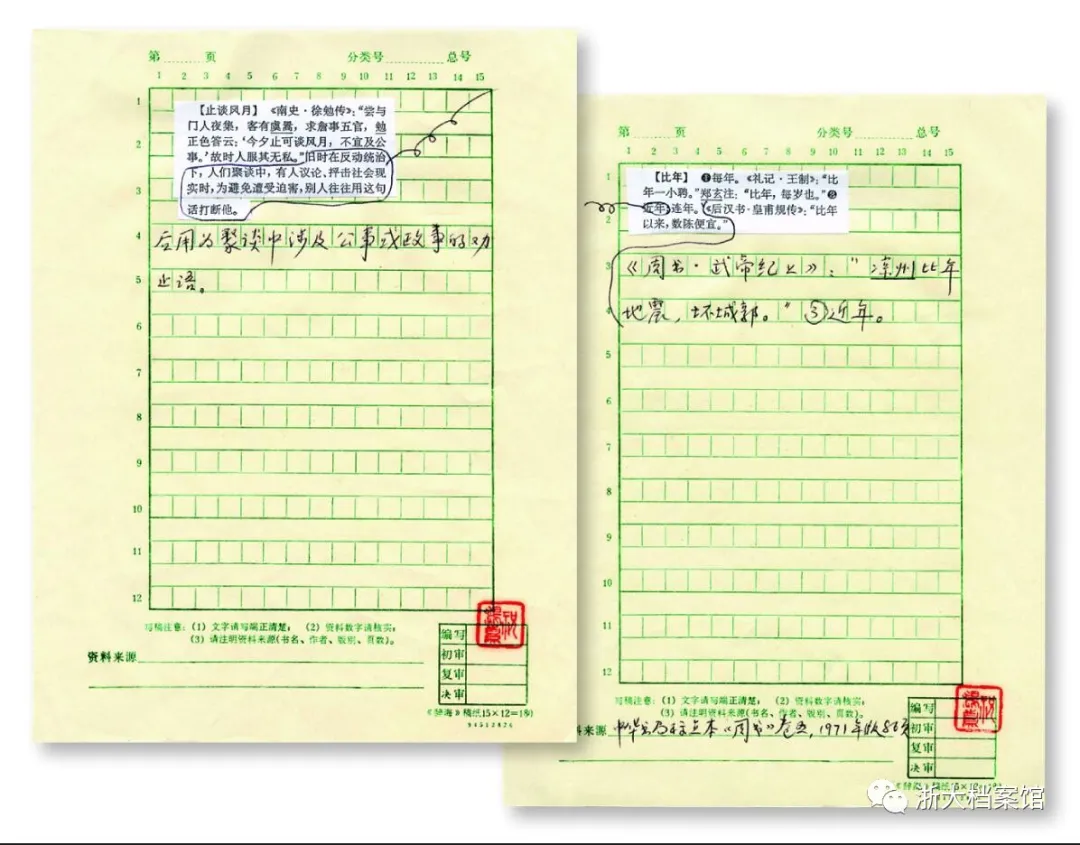 第 页 分类号 总号
1 2 3 4 5 6 7 8 9 10 11 12 13 14 15
【止谈风月】 《南史·徐勉传》：“尝与
门人夜集，客有虞暠，求詹事五官，勉
正色答云：‘今夕止可谈风月，不宜及公
事。’故时人服其无私。”旧时在反动统治
下，人们聚谈中，有人议论、抨击社会现
实时，为避免遭受迫害，别人往往用这句
话打断他。
应用为聚谈中涉及公事或政事的劝
止语。
1
2
3
4
5
6
7
8
9
10
11
12
写稿注意：（1）文字请写端正清楚； （2）资料数字请核实；
（3）请注明资料来源(书名、作者、版别、页数)。
资料来源
编写
初审
复审
决审
《辞海》稿纸15×12=180
第 页 分类号 总号
1 2 3 4 5 6 7 8 9 10 11 12 13 14 15
【比年】 ❶每年。《礼记·王制》：“比
年一小聘。”郑玄注：“比年，每岁也。”❷
近年；连年。《后汉书·皇甫规传》：“比年
以来，数陈便宜。”
《周书·武帝纪上》：“凉州比年
地震，坏城郭。”③近年。
1
2
3
4
5
6
7
8
9
10
11
12
写稿注意：（1）文字请写端正清楚； （2）资料数字请核实；
（3）请注明资料来源(书名、作者、版别、页数)。
料来源 中华书局校点本《周书》卷五，1971年版
编写
初审
复审
决审
浙大档案馆